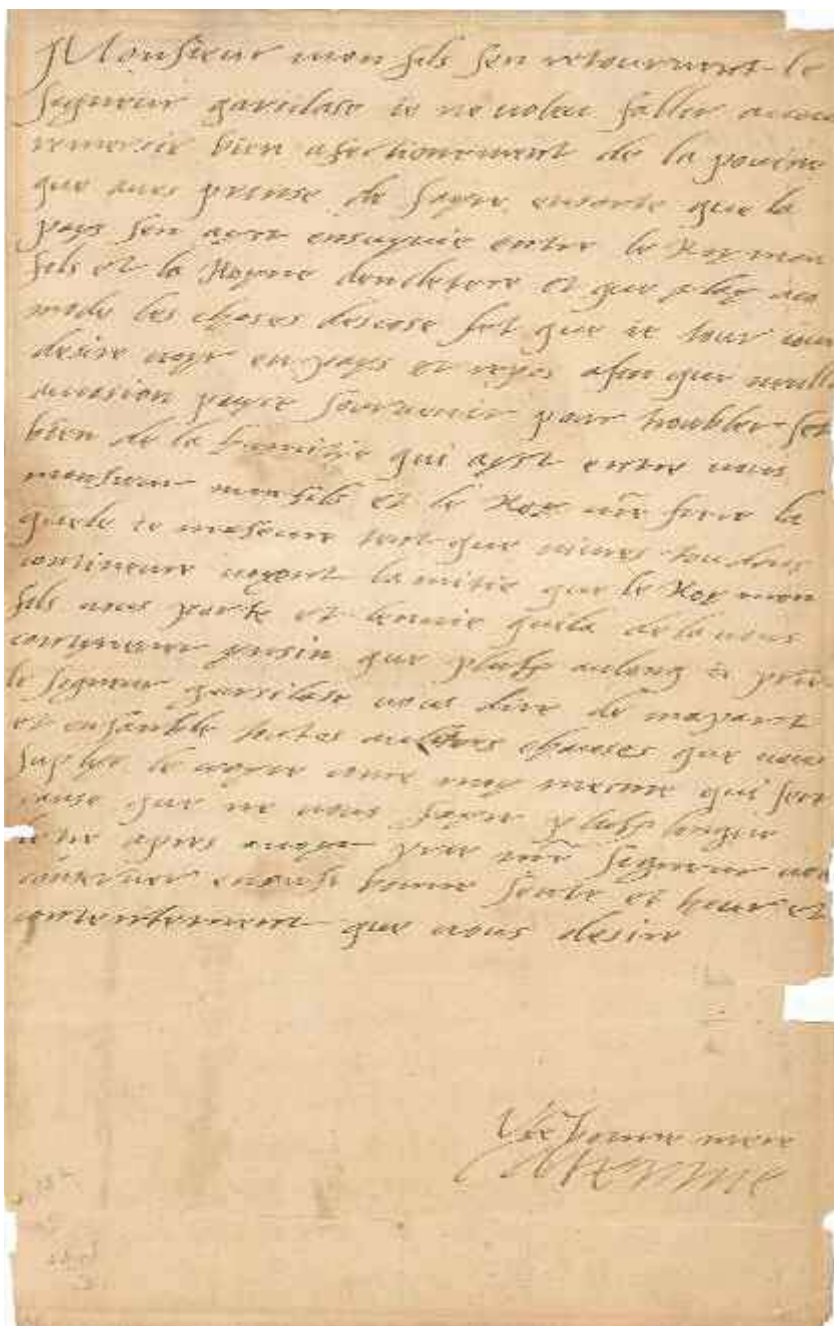 Monsieur mon fils sen retournent le
signeur garsilase ie ne voleu faller
remersie bien afectionement de la pouine
que aves prinse de fayre ensorte que la
pays sen ayst ensuyvie entre le Roy mon
fils et la Royne dencletere et que
mode les choses descose set que ie tour iour
desire voyr en pays et repos afin que neulle
aucasion puyse sourvenir pour troubler set
bien de la hamitie qui ayst entre vous
monsieur mon fils et le Roy vre frere la
quele ie maseure tent que vivres tou dous
contineure voyent lamitie que le Roy mon
fils vous porte et lenvie quila de la vous
contynuer ynsin que plulz aulong
le signeur garsilase vous dire de mapart
et ensanble toutes aultres chauses que vous
suplye le croyre come moy mesme qui sera
cause que ne vous fayre plulz longue
letre apres avoyr prie nre signeur vous
conserver bonne sente et heur et
contentement que vous desire
Vre bonne mere
Caterine